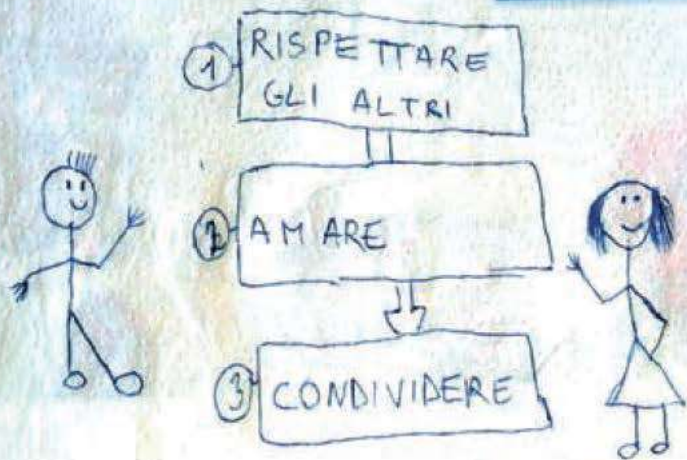 1 RISPETTARE
GLI ALTRI
2 AMARE
3 CONDIVIDERE